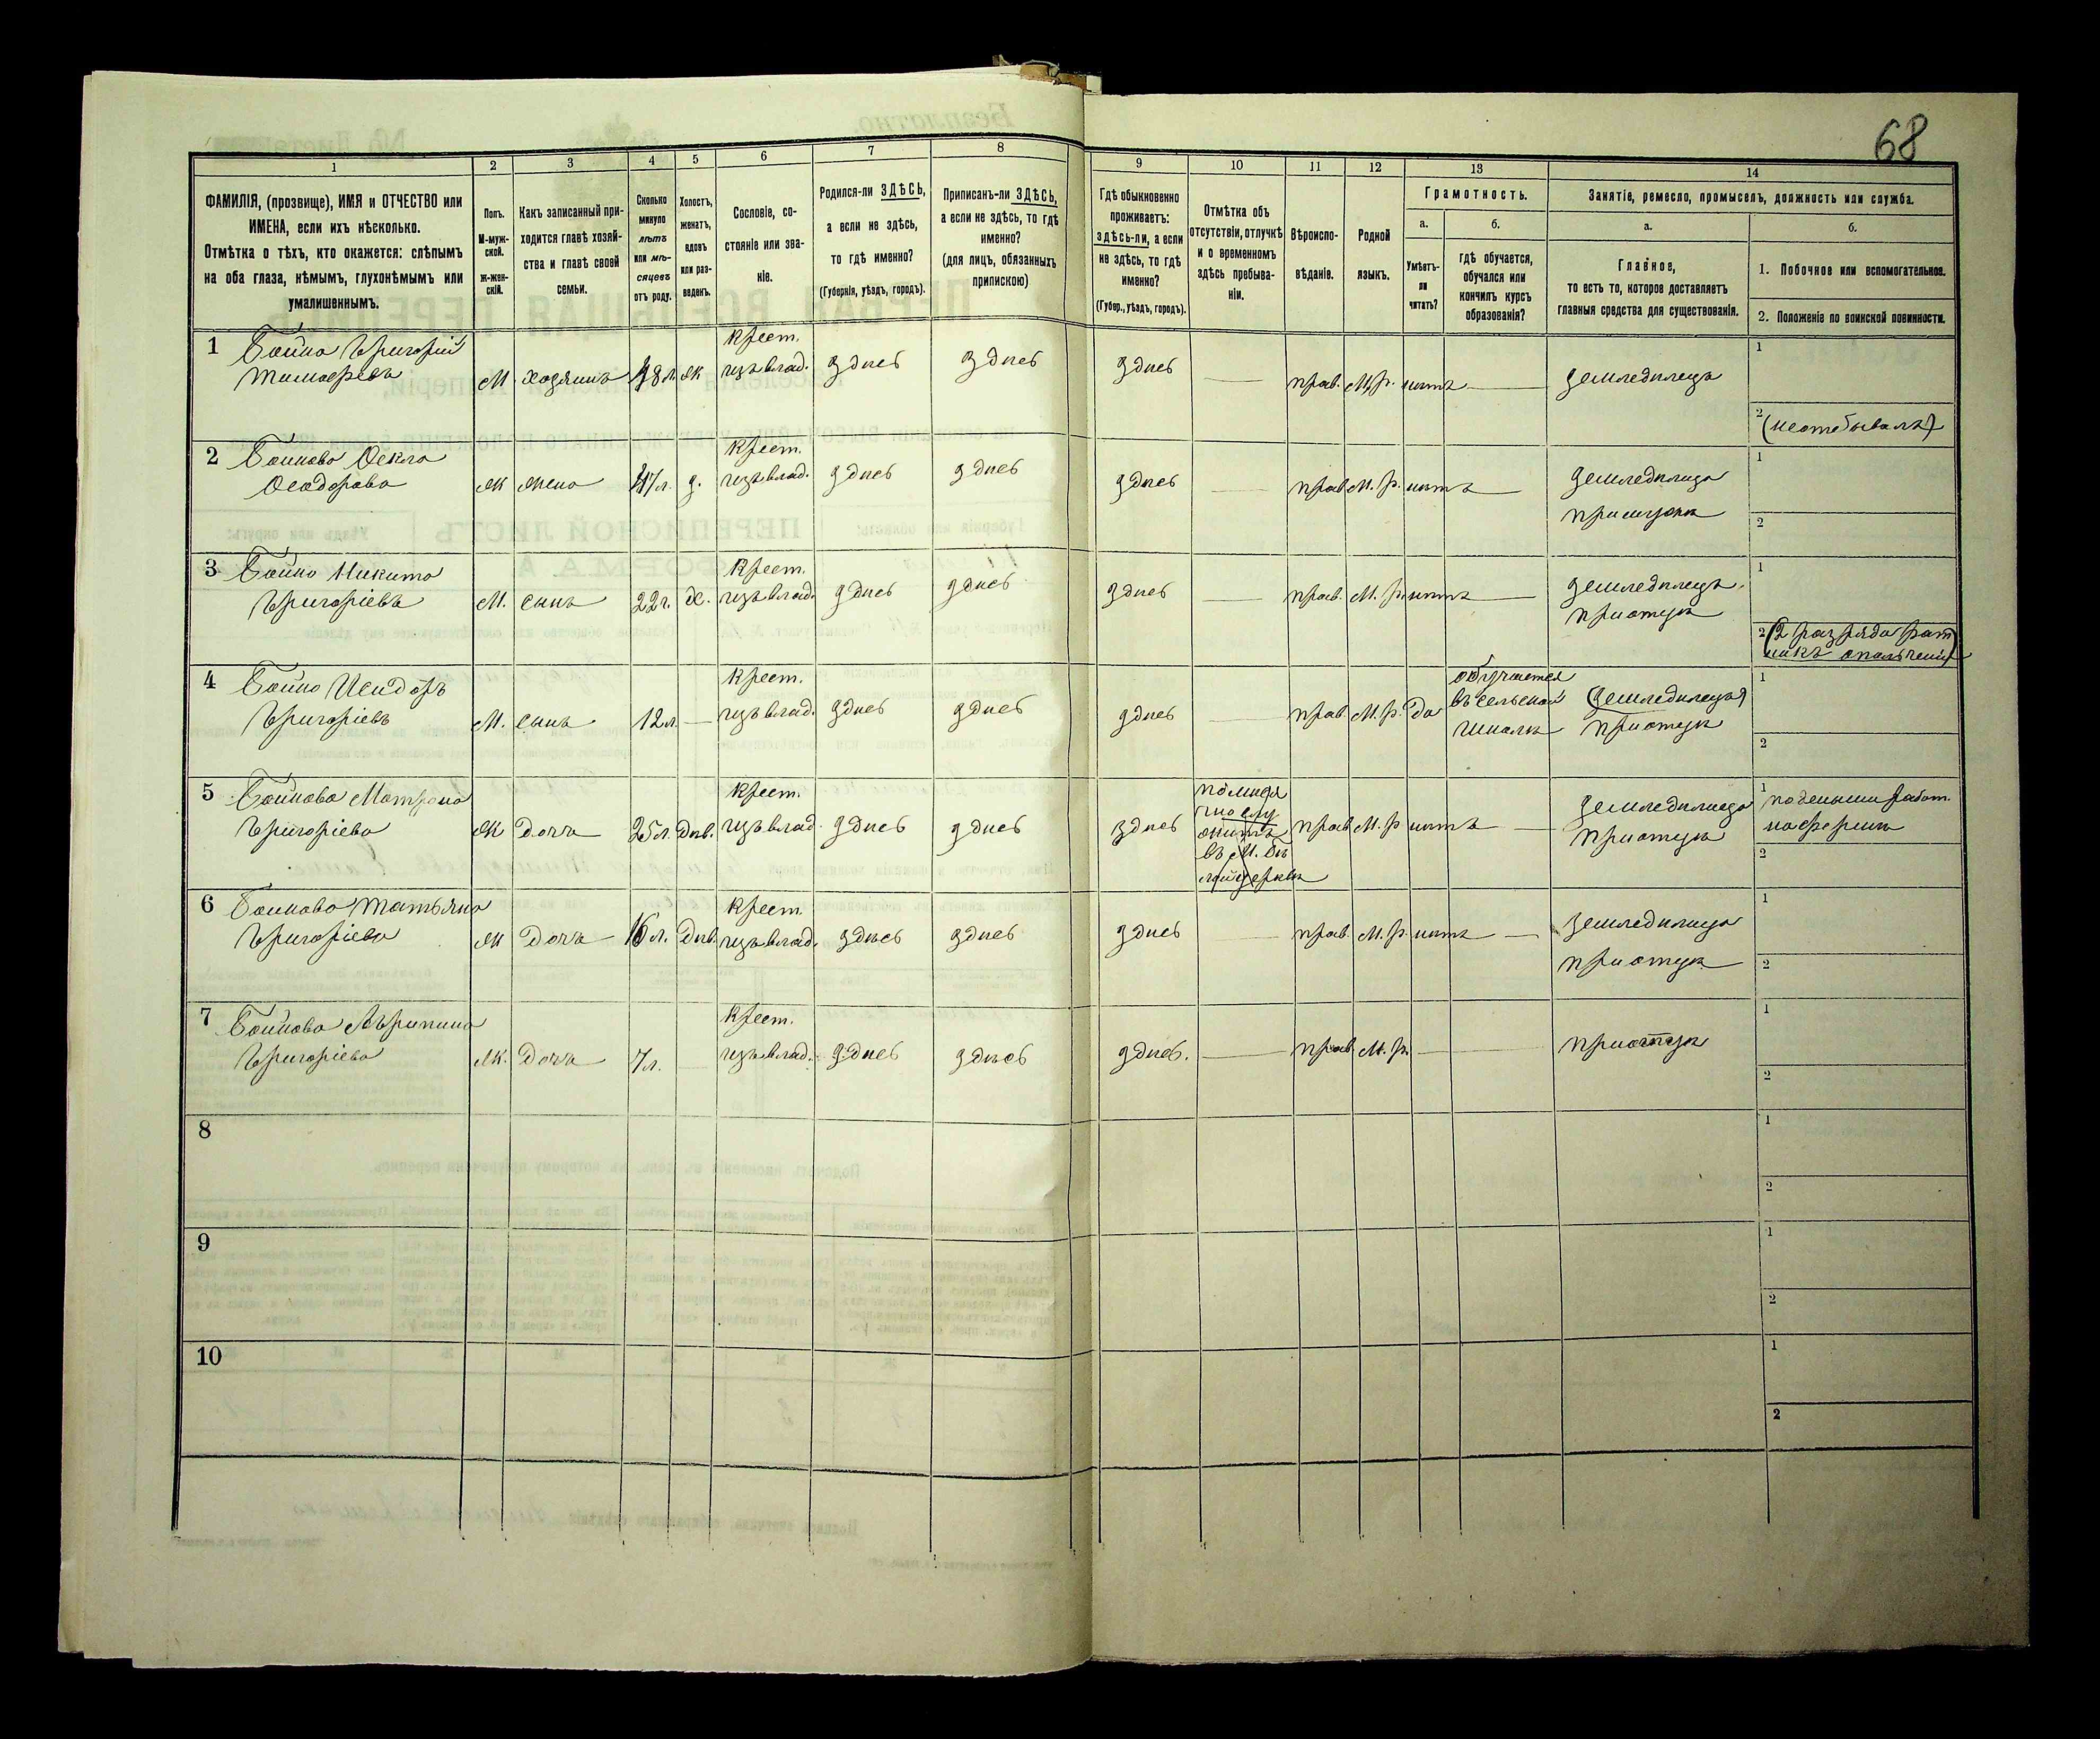 68
1
2
3
4
5
6
7
8
9
10
11
12
13
14
ФАМИЛІЯ, (прозвище), ИМЯ и ОТЧЕСТВО или
ИМЕНА, если ихъ нѣсколько.
Отмѣтка о тѣхъ, кто окажется: слѣпымъ
на оба глаза, нѣмымъ, глухонѣмымъ или
умалишеннымъ.
Полъ.
М-муж-
ской.
ж-жен-
скій.
Какъ записанный при-
ходится главѣ хозяй-
ства и главѣ своей
семьи.
Сколько
минуло
лѣтъ
или мѣ-
сяцевъ
отъ роду.
Холостъ,
женатъ,
вдовъ
или раз-
веденъ.
Сословіе, со-
стояніе или зва-
ніе.
Родился-ли ЗДѢСЬ,
а если не здѣсь,
то гдѣ именно?
(Губернія, уѣздъ, городъ).
Приписанъ-ли ЗДѢСЬ,
а если не здѣсь, то гдѣ
именно?
(для лицъ, обязанныхъ
припискою)
Гдѣ обыкновенно
проживаетъ:
здѣсь-ли, а если
не здѣсь, то гдѣ
именно?
(Губер., уѣздъ, городъ).
Отмѣтка объ
отсутствіи, отлучкѣ
и о временномъ
здѣсь пребыва-
ніи.
Вѣроиспо-
вѣданіе.
Родной
языкъ.
Грамотность.
а.
Умѣетъ-
ли
читать?
б.
гдѣ обучается,
обучался или
кончилъ курсъ
образованія?
Занятіе, ремесло, промыселъ, должность или служба.
а.
Главное,
то есть то, которое доставляетъ
главныя средства для существованія.
б.
1. Побочное или вспомогательное.
2. Положеніе по воинской повинности.
1 Бойко Григорій
Тимоѳеевъ
М хозяинъ 48 л. ж
Крест.
изъ влад. здѣсь здѣсь здѣсь — прав. М.р. нѣтъ — земледѣлецъ
1
2 (неотбывалъ)
2 Бойкова Ѳекла
Ѳеодорова
ж жена 47 л. з.
Крест.
изъ влад. здѣсь здѣсь здѣсь — прав. М.р. нѣтъ — земледѣлица
при мужѣ
1
2
3 Бойко Никита
Григоріевъ
М. сынъ 22 г. х.
Крест.
изъ влад. здѣсь здѣсь здѣсь — прав. М.р. нѣтъ — земледѣлецъ
при отцѣ
1
2 (2 разряда рат
никъ ополченія)
4 Бойко Исидоръ
Григоріевъ
М. сынъ 12 л. —
Крест.
изъ влад. здѣсь здѣсь здѣсь — прав. М.р. да
обучается
въ сельской
школѣ
(земледѣлецъ)
при отцѣ
1
2
5 Бойкова Матрона
Григоріева
ж дочь 25 л. дѣв.
Крест.
изъ влад. здѣсь здѣсь здѣсь
прав. М.р. нѣтъ — земледѣлица
при отцѣ
1 поденныя работ.
на фермѣ
2
6 Бойкова Татьяна
Григоріева
ж дочь 16 л. дѣв.
Крест.
изъ влад. здѣсь здѣсь здѣсь — прав. М.р. нѣтъ — земледѣлица
при отцѣ
1
2
7 Бойкова Агрипина
Григоріева
ж. дочь 7 л. —
Крест.
изъ влад. здѣсь здѣсь здѣсь. — прав. М.р. — при отцѣ
1
2
8
1
2
9
1
2
10
1
2